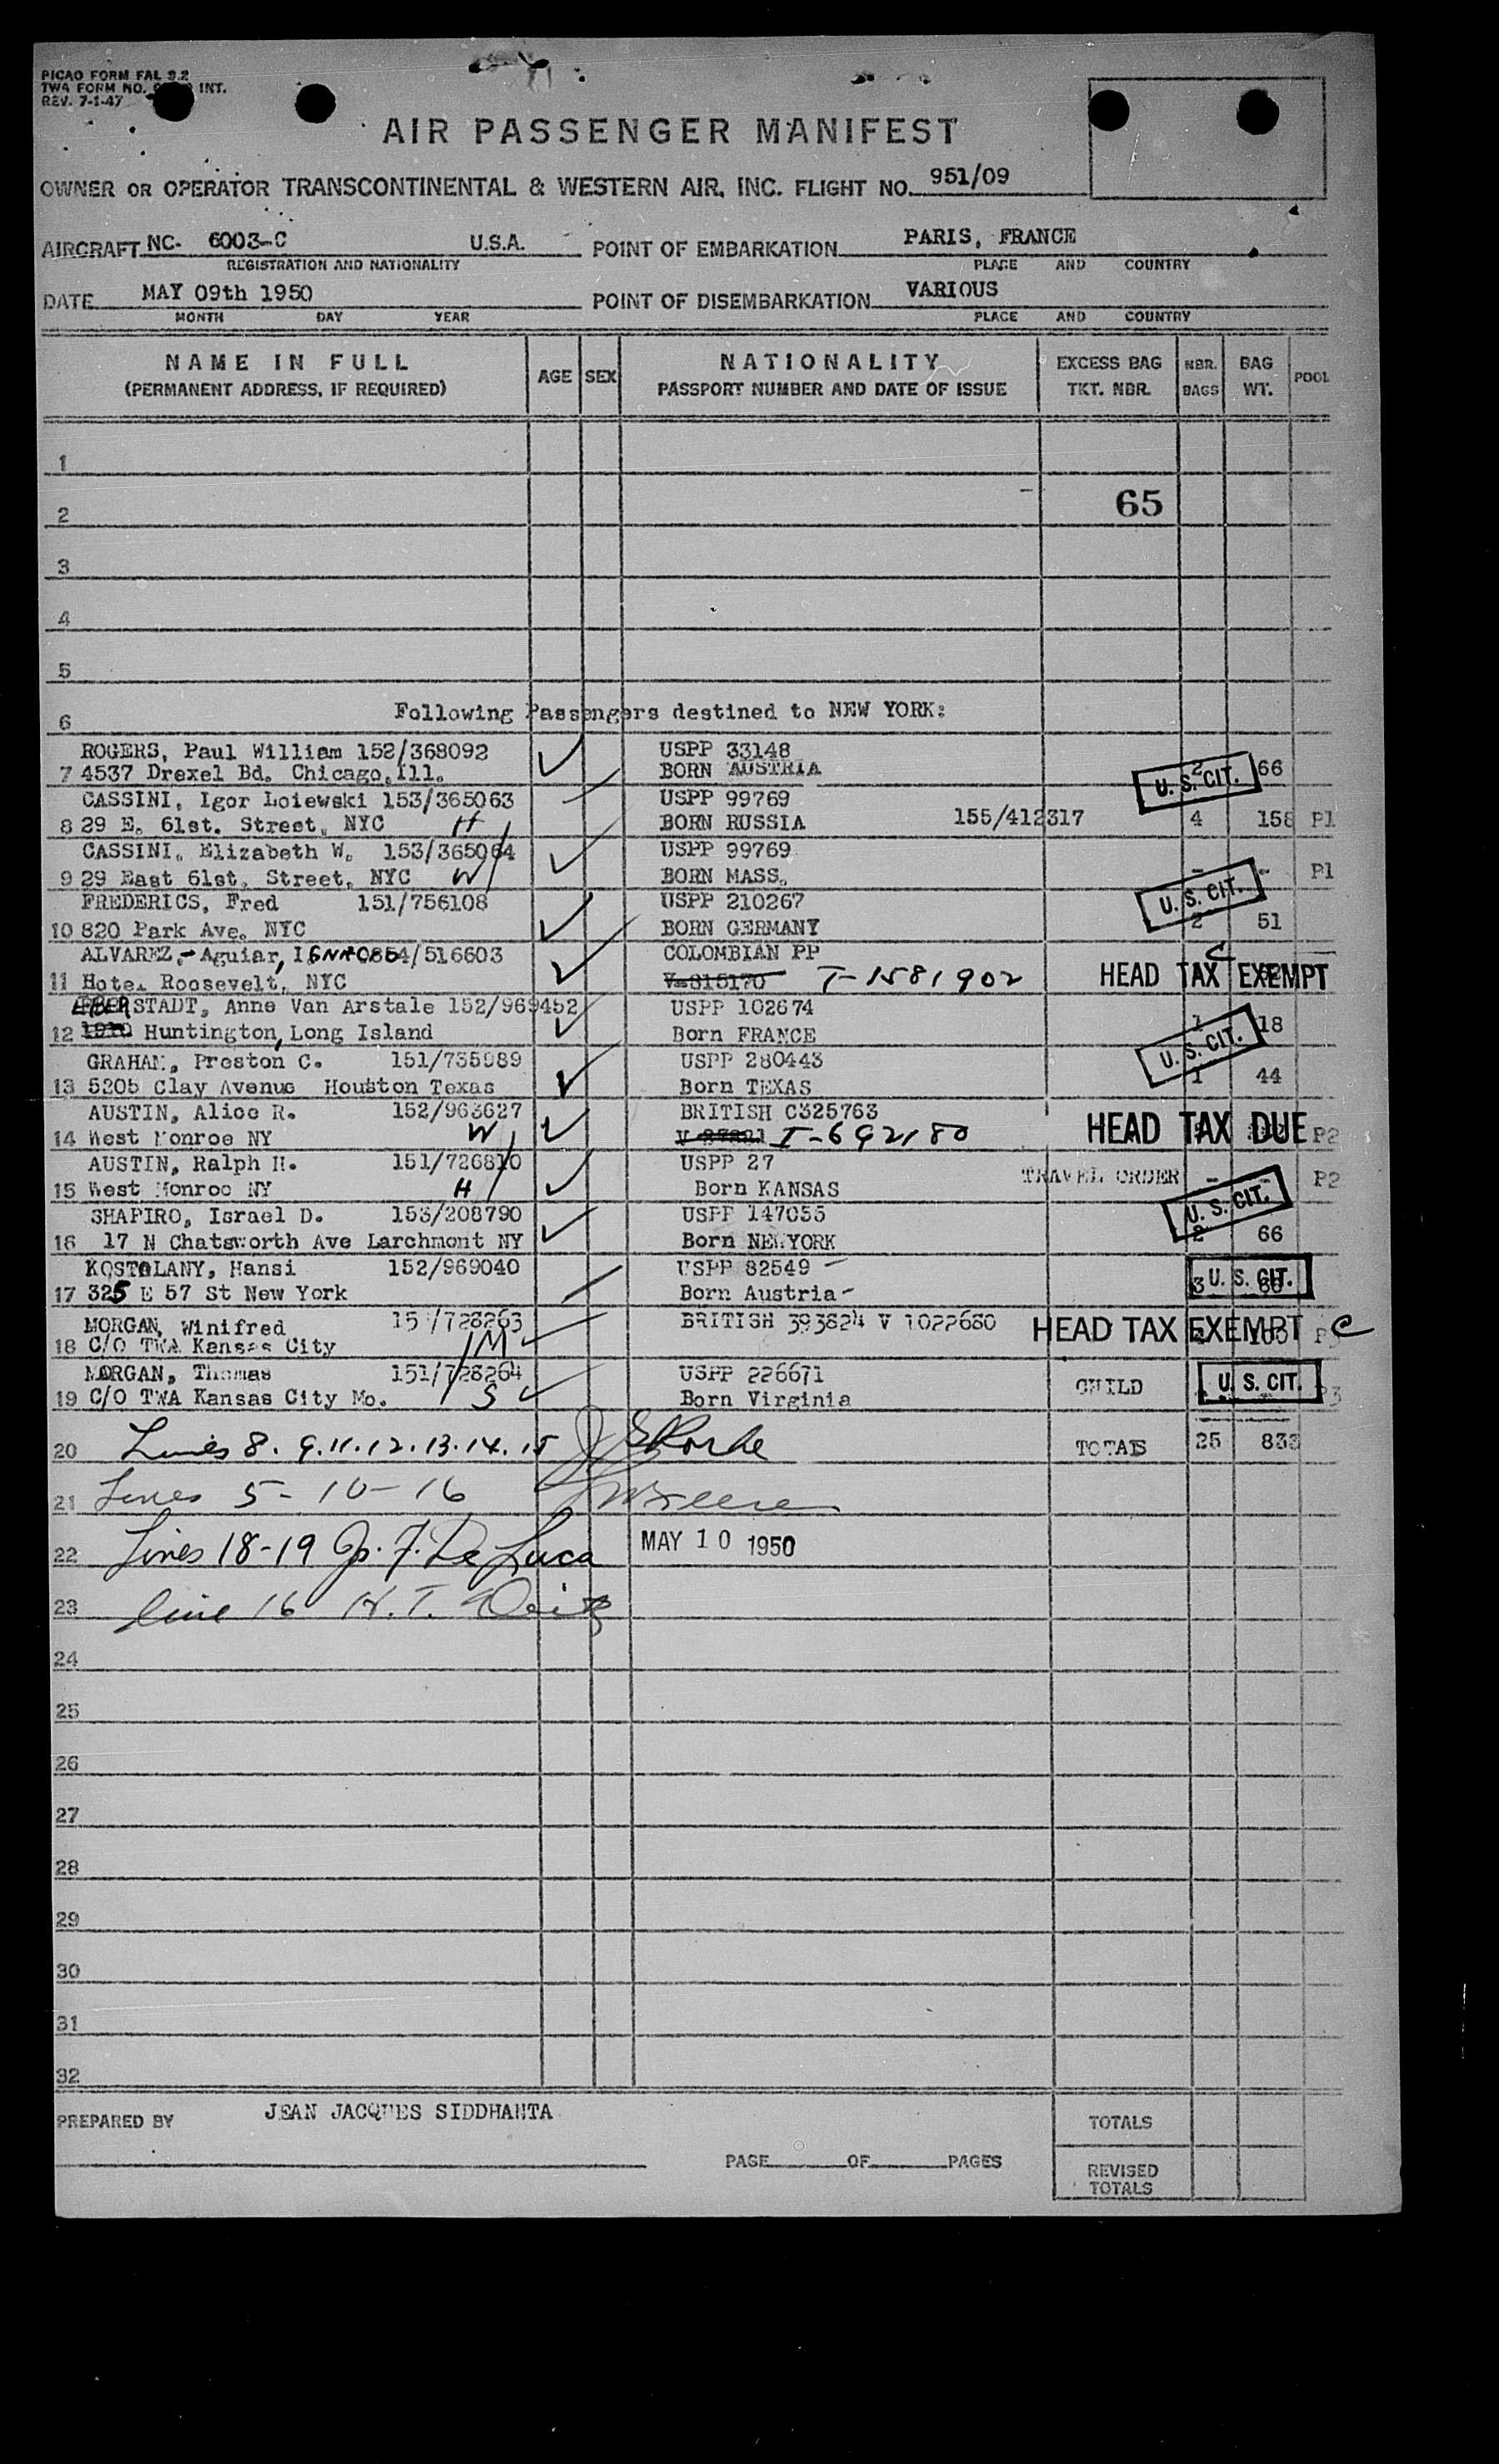 PICAO FORM FAL 9.2
TWA FORM NO. INT.
REV. 7-1-47
AIR PASSENGER MANIFEST
OWNER OR OPERATOR TRANSCONTINENTAL & WESTERN AIR, INC. FLIGHT NO. 951/09
AIRCRAFT NC- 6003-C U.S.A. POINT OF EMBARKATION PARIS, FRANCE
REGISTRATION AND NATIONALITY PLACE AND COUNTRY
DATE MAY 09th 1950 POINT OF DISEMBARKATION VARIOUS
MONTH DAY YEAR PLACE AND COUNTRY
NAME IN FULL AGE SEX NATIONALITY EXCESS BAG NBR. BAG POOL
(PERMANENT ADDRESS, IF REQUIRED) PASSPORT NUMBER AND DATE OF ISSUE TKT. NBR. BAGS WT.
1
2 65
3
4
5
6 Following Passengers destined to NEW YORK:
ROGERS, Paul William 152/368092 USPP 33148
7 4537 Drexel Bd. Chicago, Ill. BORN AUSTRIA 2 66 U. S. CIT.
CASSINI, Igor Loiewski 153/365063 USPP 99769
8 29 E. 61st. Street, NYC H BORN RUSSIA 155/412317 4 158 P1
CASSINI, Elizabeth W. 153/365064 USPP 99769
9 29 East 61st. Street, NYC W BORN MASS. - - P1
FREDERICS, Fred 151/756108 USPP 210267 U. S. CIT.
10 820 Park Ave. NYC BORN GERMANY 2 51
ALVAREZ,-Aguiar, 516603 COLOMBIAN PP C
11 Hotel Roosevelt, NYC V-815170 T-1581902 HEAD TAX EXEMPT
EBERSTADT, Anne Van Arstale 152/969452 USPP 102674
12 Huntington, Long Island Born FRANCE 1 18 U. S. CIT.
GRAHAM, Preston C. 151/735989 USPP 280443
13 5205 Clay Avenue Houston Texas Born TEXAS 1 44
AUSTIN, Alice R. 152/963627 BRITISH C325763
14 West Monroe NY W I-692180 HEAD TAX DUE P2
AUSTIN, Ralph H. 151/726810 USPP 27 TRAVEL ORDER - - P2
15 West Monroe NY H Born KANSAS
SHAPIRO, Israel D. 153/208790 USPP 147055 U. S. CIT.
16 17 N Chatsworth Ave Larchmont NY Born NEWYORK 2 66
KOSTOLANY, Hansi 152/969040 USPP 82549
17 325 E 57 St New York Born Austria 3 U. S. CIT.
MORGAN, Winifred 728263 BRITISH 393824 V 1022680 HEAD TAX EXEMPT C
18 C/O TWA Kansas City M
MORGAN, Thomas 151/728264 USPP 226671 CHILD U. S. CIT.
19 C/O TWA Kansas City Mo. S Born Virginia
20 Lines 8. 9. 11. 12. 13. 14. 15 TOTALS 25 833
21 Lines 5-10-16
22 Lines 18-19 Jo. F. De Luca MAY 10 1950
23 line 16 H. T.
24
25
26
27
28
29
30
31
32
PREPARED BY JEAN JACQUES SIDDHANTA TOTALS
PAGE OF PAGES REVISED TOTALS